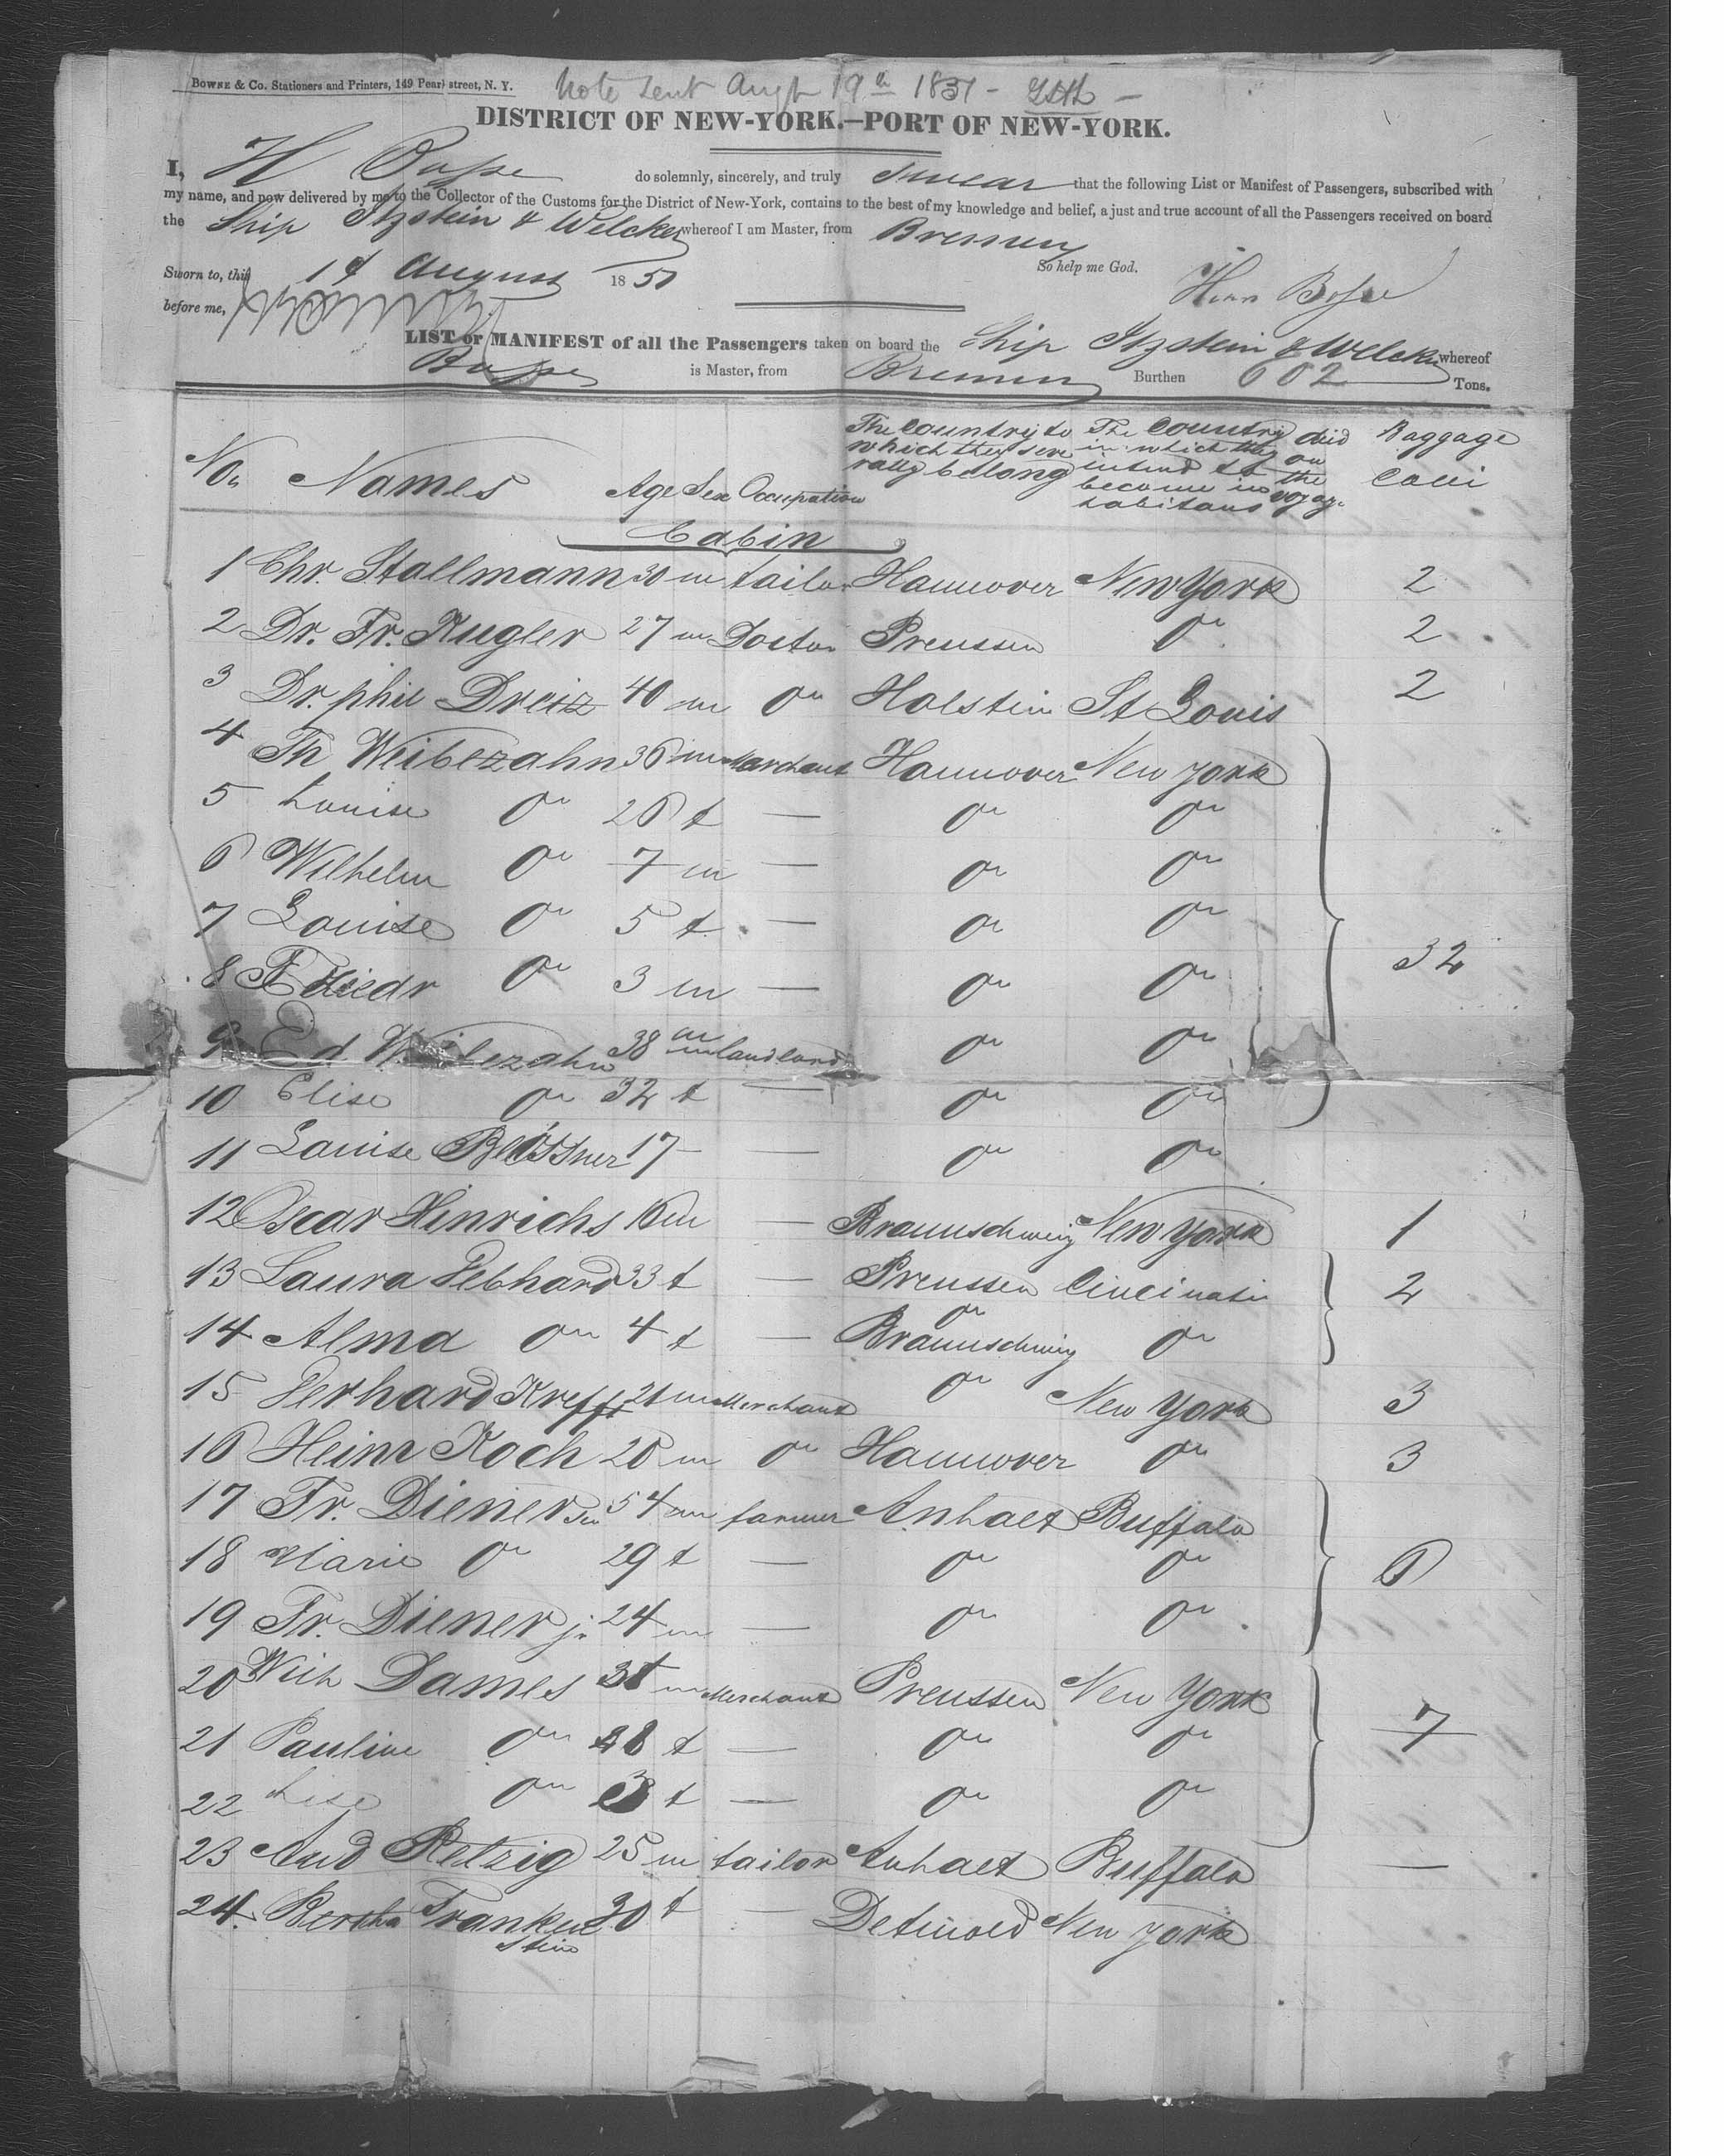 BOWNE & Co. Stationers and Printers, 149 Pearl street, N. Y.
Note sent Augt 19th 1851 -
DISTRICT OF NEW-YORK.—PORT OF NEW-YORK.
I, H Bosse do solemnly, sincerely, and truly swear that the following List or Manifest of Passengers, subscribed with
my name, and now delivered by me to the Collector of the Customs for the District of New-York, contains to the best of my knowledge and belief, a just and true account of all the Passengers received on board
the Ship Itzstein & Welcker whereof I am Master, from Bremen
So help me God.
Sworn to, this August 1851
before me,
Bosse
LIST or MANIFEST of all the Passengers taken on board the Ship Itzstein & Welcker whereof
Bosse is Master, from Bremen Burthen 602 Tons.
No. Names Age Sex Occupation The Country to which they severally belong The Country in which they intend to become inhabitans died on the voyag. Baggage Colli
Cabin
1 Chr. Stallmann 30 m tailor Hannover New York 2
2 Dr. Fr. Kugler 27 m Doctor Preussen do 2
3 Dr. phil Dreiz 40 m do Holstein St Louis 2
4 Th Weibezahn 36 m Merchant Hannover New York
5 Louise do 26 f — do do
6 Wilhelm do 7 m — do do
7 Louise do 5 f — do do
8 Friedr do 3 m — do do 32
9 Ed Weibezahn 38 m landlord do do
10 Elise do 32 f — do do
11 Louise 17 — do do
12 Oscar Hinrichs 16 m — Braunschweig New York 1
13 Laura Gebhard 33 f — Preussen Cincinati 2
14 Alma do 4 f — do Braunschweig do
15 Gerhard Krefft 21 m Merchant do New York 3
16 Heinr Koch 20 m do Hannover do 3
17 Fr. Diener Sen 54 m farmer Anhalt Buffalo
18 Marie do 29 f — do do 6
19 Fr. Diener jr 24 m — do do
20 Wilh Dames m Merchant Preussen New York
21 Pauline do 28 f — do do 7
22 Lise do 3 f — do do
23 Aud Retzig 25 m tailor Anhalt Buffalo —
24. Bertha Franken 30 f — Detmold New York
stein